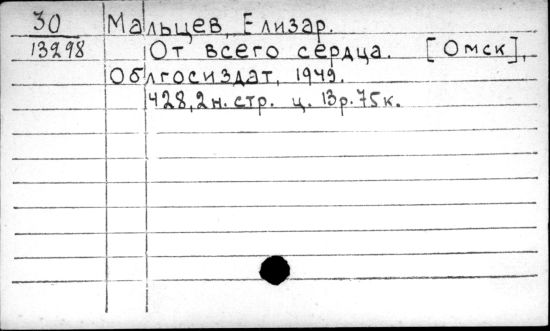 30 Мальцев, Елизар.
13298 От всего сердца. [Омск],
Облгосиздат, 1949.
428,2н.стр. ц. 13р.75к.